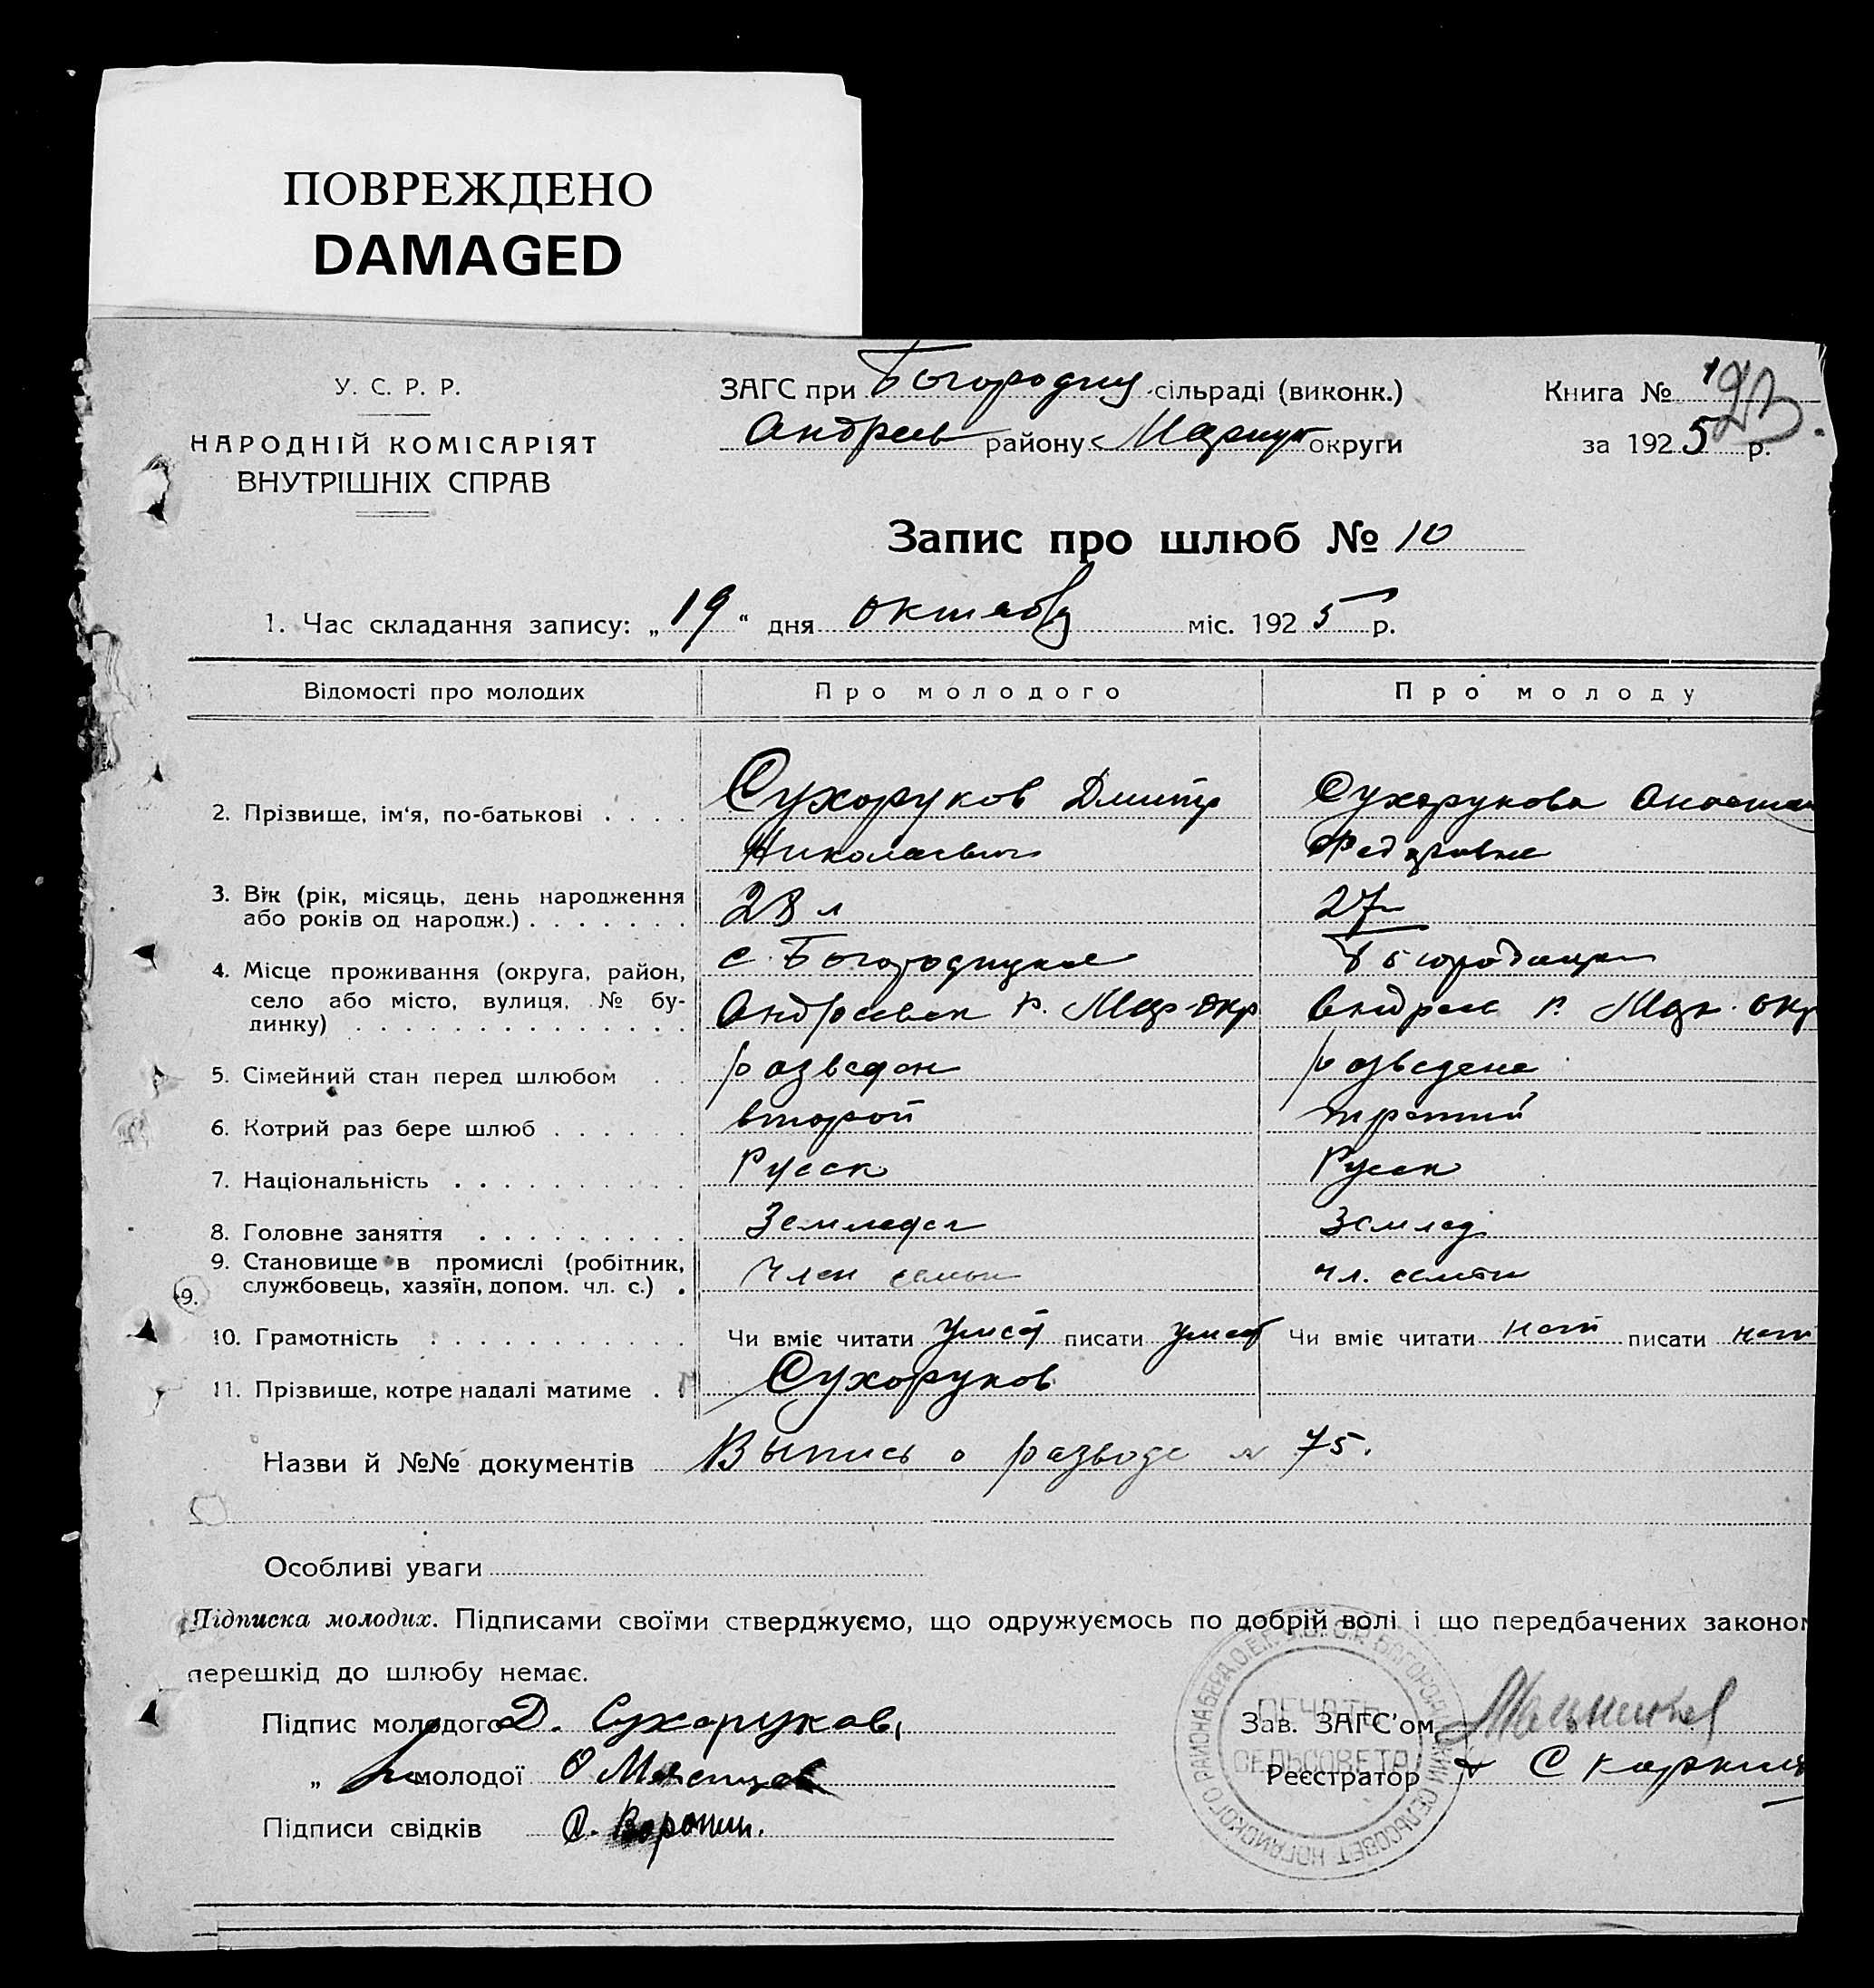 ПОВРЕЖДЕНО
DAMAGED
У. С. Р. Р.
НАРОДНІЙ КОМІСАРІЯТ
ВНУТРІШНІХ СПРАВ
ЗАГС при Богородиц сільраді (виконк.)
Андреев району Мариуп округи
Книга №
за 1925 р.
Запис про шлюб № 10
1. Час складання запису: „19“ дня октября міс. 1925 р.
Відомості про молодих
Про молодого
Про молоду
2. Прізвище, ім‘я, по-батькові . . . .
Сухоруков Дмитр
Николаевич
Сухорукова
Федоровна
3. Вік (рік, місяць, день народження
або років од народж.) . . . . . . .
28 л
27
4. Місце проживання (округа, район,
село або місто, вулиця, № бу-
динку) . . . . . . . . . . . . . .
с. Богородицкое
Андреевск р. Мар-окр
Андреев р. Мар. окр
5. Сімейний стан перед шлюбом . .
разведен
разведена
6. Котрий раз бере шлюб . . . . . .
второй
третий
7. Національність . . . . . . . . . .
Русск
Русск
8. Головне заняття . . . . . . . . .
Земледел
Землед
9. Становище в промислі (робітник,
службовець, хазяїн, допом. чл. с.) .
член семьи
чл. семьи
9.
10. Грамотність . . . . . . . . . . .
Чи вміє читати умеет писати умеет
Чи вміє читати нет писати нет
11. Прізвище, котре надалі матиме . .
Сухоруков
Назви й №№ документів Выпись о разводе № 75.
Особливі уваги
Підписка молодих. Підписами своїми стверджуємо, що одружуємось по добрій волі і що передбачених законом
перешкід до шлюбу немає.
Підпис молодого Д. Сухоруков
„ молодої
Підписи свідків
Зав. ЗАГС’ом
Реєстратор
ПЕЧАТЬ
СЕЛЬСОВЕТА